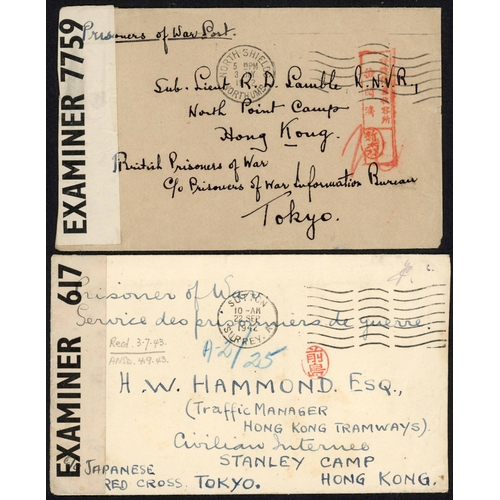 EXAMINER 7759
Prisoners of War Post.
NORTH SHIELDS
5 PM
NORTHUMB
Sub. Lieut R. D. Lamble R.N.V.R.,
North Point Camp
Hong Kong.
British Prisoners of War
C/o Prisoners of War Information Bureau
Tokyo.
EXAMINER 617
Prisoner of W
Service des prisonniers de guerre.
SUTTON
10 - AM
22 SEP
1942
SURREY. A
Recd. 3-7-43.
ANSD. 4-9-43.
A-2/25
前島
H. W. HAMMOND. ESQ.,
(Traffic MANAGER
HONG KONG TRAMWAYS)
Civilian Internee
STANLEY CAMP
c/o JAPANESE
RED CROSS. TOKYO. HONG KONG.